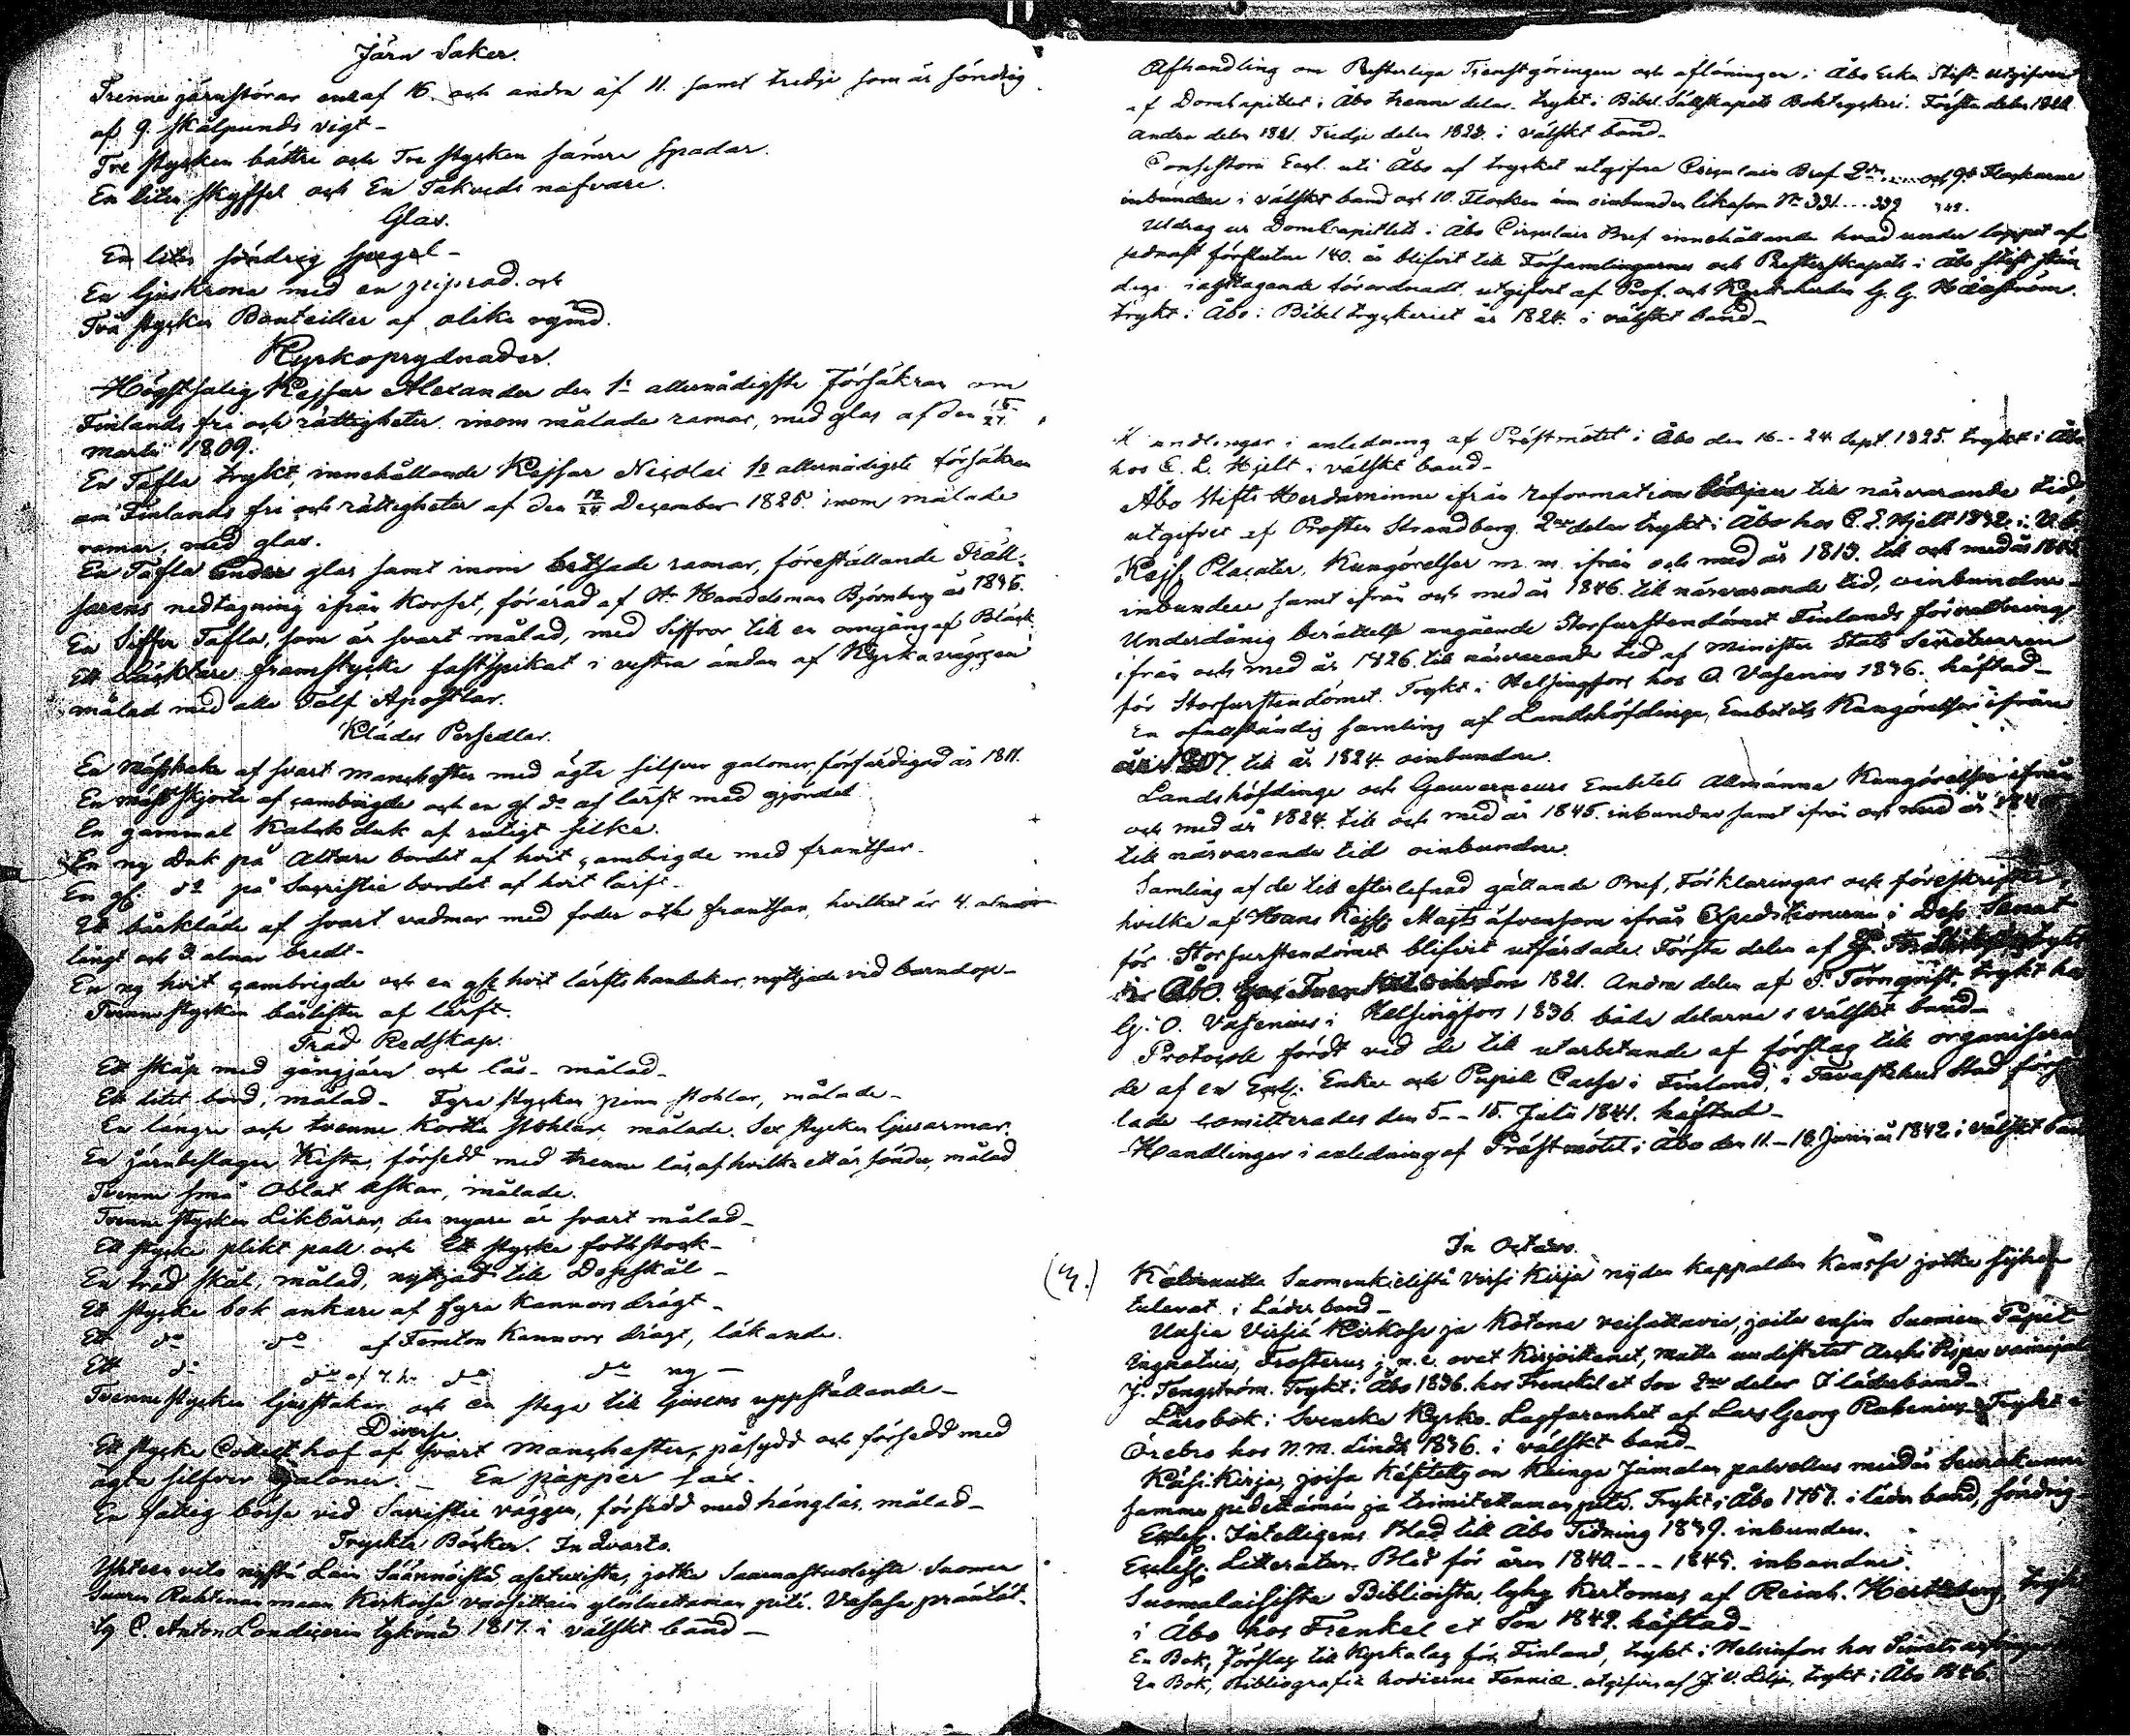 Järn Saker.
Trenne järnstörar en af 16. och andra af 11. samt tredje som är söndrig
af 9. skålpunds vigt -
Tre stycken bättre och Tre stycken sämre spadar.
En liten skyffel och En Takveds nafvare.
Glas.
En liten söndrig spegel -
En ljuskrona med en piprad. och
Två stycken Bouteiller af olika rymd.
Kyrkoprydnader.
Högstsalig Kejsar Alexander den 1. allernådigste försäkran om
Finlands fri och rättigheter inom målade ramar, med glas af den 15/27.
martii 1809.
En Tafla trykt, innehållande Kejsar Nicolai 1s allernådigste försäkran
om Finlands fri och rättigheter af den 12/24 December 1825. inom målade
ramar, med glas.
En Tafla under glas samt inom betsade ramar, föreställande Fräll-
sarens nedtagning ifrån Korset, förärad af Hr Handelsman Björnberg år 1836.
En Siffer Tafla, som är svart målad, med Siffror till en omgång af Bläck
Ett Läcktare framstycke fastspikat i vestra ändan af Kyrkoväggen
målad med alla Tolf Apostlar.
Klädes Persedlar.
En mässhake af svart manchester med ägta silfver galoner, förfärdigad år 1811.
En mäss skjorta af cambrigde och en gl. do af lärft med gjördel
En gammal Kalk duk af rutigt silke.
En ny Duk på Altare bordet af hvit cambrigde med frantsar.
En gl. do på Sacristie bordet af hvit lärft.
Ett bårkläde af svart vadmar med foder och frantsar, hvilket är 4. alnar
långt och 3 alnar bredt.
En ny hvit cambrigde och en gl. hvit lärfts handukar, nyttjade vid barndop -
Tvenne stycken bårlister af lärft.
Träd Redskap.
Ett skåp med gångjärn och lås - målad -
Ett litet bord, målad - Fyra stycken pinn stohlar, målade -
En längre och tvenne korta stohlar målade. Sex stycken ljusarmar.
En järnbeslagen Kista, försedd med trenne lås, af hvilka ett är söndr, målad
Tvenne små Oblat askar, målade.
Tvenne stycken Likbårar, den nyare är svart målad -
Ett stycke plikt pall och Ett stycke fothstock -
En träd skål, målad, nyttjad till Dopskål -
Ett stycke bok ankare af fyra Kannors drägt -
Ett do do af Femton Kannors drägt, läkande.
Ett do do af 7. k. do do ny -
Tvenne stycken ljusstakar och en stege till ljusens uppställande -
Diverse.
Ett stycke Collect hof af svart Manchester, påsydd och försedd med
ägta silfver galoner. - En papper sax.
En fattig bössa vid Sacristie väggen, försedd med hänglås. målad -
Tryckta Böcker. In Quarto.
Yhteen veto nystä Lain Säännöistä, asetuxista, jotka Saarnastuoleista Suomen
Suuren Ruhtinan maan Kirkoisa vuosittain ylösluettaman pitä. Vasasa präntät-
ty C. Anton Londicerin tykönä 1817. i välskt band -
Afhandling om Presterliga Tjenstgöringen och aflöningen i Åbo Erke Stift utgifven
af DomCapitlet i Åbo trenne delar. trykt i Bibel Sällskapets Boktryckeri. Första delen
andra delen 1821. Tredje delen 1823. i välskt band -
Consistorii Eccl. uti Åbo af trycket utgifna Circulair Bref och 9de Flockarne
inbundne i välskt band och 10. Flocken ännu oinbunden likasom No 331 --- 339
Utdrag ur DomCapitlets i Åbo Circulair Bref innehållande hvad under loppet af
sednast förflutne 140. år blifvit till Församlingarnes och Presterskapets i Åbo stift
iagttagande förordnadt, utgifvet af Prof. och Kyrkoherden G. G. Hällström.
trykt i Åbo i Bibel tryckeriet år 1824. i välskt band -
Handlingar i anledning af Prästmötet i Åbo den 16 -- 24 Sept. 1825. trykt i Åbo
hos C. L. Hjelt i välskt band -
Åbo Stifts Herdaminne ifrån reformations början till närvarande tid,
utgifvet af Prosten Strandberg. 2ne delar trykt i Åbo hos C. L. Hjelt 1832. i V. b.
Kejs. Placater, Kungörelser m. m. ifrån och med år 1813. till och med år
inbundne samt ifrån och med år 1846. till närvarande tid, oinbundne -
Underdånig berättelse angående Storfurstendömet Finlands förvaltning
ifrån och med år 1826. till närvarande tid af Minister Stats Secreteraren
för Storfurstendömet. Trykt i Helsingfors hos O. Vasenius 1836. häftad -
En ofullständig samling af Landshöfdinge Embetets Kungörelser ifrån
till år 1824. oinbundne.
Landshöfdinge och Gouverneurs Embetets Allmänna Kungörelser ifrån
och med år 1824. till och med år 1845. inbundne samt ifrån och med år
till närvarande tid oinbundne.
Samling af de till efterlefnad gällande Bref, Förklaringar och föreskrifter,
hvilka af Hans Kejs. Majt äfvensom ifrån Expeditionerne i Dess Senat
för Storfurstendömet blifvit utfärdade. Första delen af
Åbo. 1821. Andra delen af P. Törnqvist, trykt hos
G. O. Vasenius i Helsingfors 1836. både delarne i välskt band -
Protocoll fördt vid de till utarbetande af förslag till organiseran
de af en Eccl. Enke och Pupill Cassa i Finland, i Tavastehus Stad förs
lade Comitterades den 5 -- 15. Julii 1841. häftad -
Handlingar i anledning af Prästmötet i Åbo den 11 - 18 Junii år 1842 i välskt band
In Octavo.
(4.) Kalunutta Suomenkielistä Virsi Kirja nijden kappalden kanssa jotka sijhen
tulevat. i Läder band -
Uusia Virsiä Kirkosa ja Kotona veisattavia, joita ensin Suomen Papit
Ingnatius, Frosterus j. n. e. ovat Kirjoittanet, mutta uudistetut Archi Pispa vainajal
J. Tengström. Trykt i Åbo 1836. hos Frenckel et Son 2ne delar I läderband -
Lärobok i Svenska Kyrko-Lagfarenhet af Lars Georg Rabenius. Trykt i
Örebro hos N. M. Lindh 1836. i välskt band -
Käsi-Kirja, joisa Käsitetty on Kuinga Jumalan palvellus meidän Seurakunni
samme pidettämän ja toimitettaman pitä. Trykt i Åbo 1757. i läder band, söndrig -
Eccles. Intelligens Blad till Åbo Tidning 1839. inbunden.
Eccles. Litteratur-Blad för åren 1840 --- 1845. inbandne.
Suomalaisista Biblioista, lyhy Kertomus af Reinh. Hertzberg, trykt
i Åbo hos Frenkel et Son 1849. häftad -
En Bok, Förslag till Kyrkolag för Finland, trykt i Helsinfors hos Simelii arfvingar
En Bok, Bibliografia hodierna Fenniæ. utgifven af J. V. Lilja, trykt i Åbo 1846.